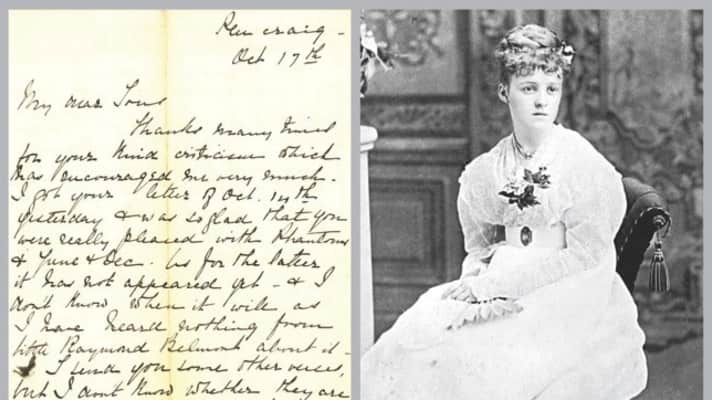 Pencraig -
Oct 17th
My dear Tonni
Thanks many times
for your kind criticism which
has encouraged me very much.
I got your letter of Oct. 14th
yesterday & was so glad that you
were really pleased with Phantoms
& June & Dec. As for the latter
it has not appeared yet - & I
don't know when it will as
I have heard nothing from
little Raymond Belmont about it -
I send you some other verses,
but I don't know whether they are